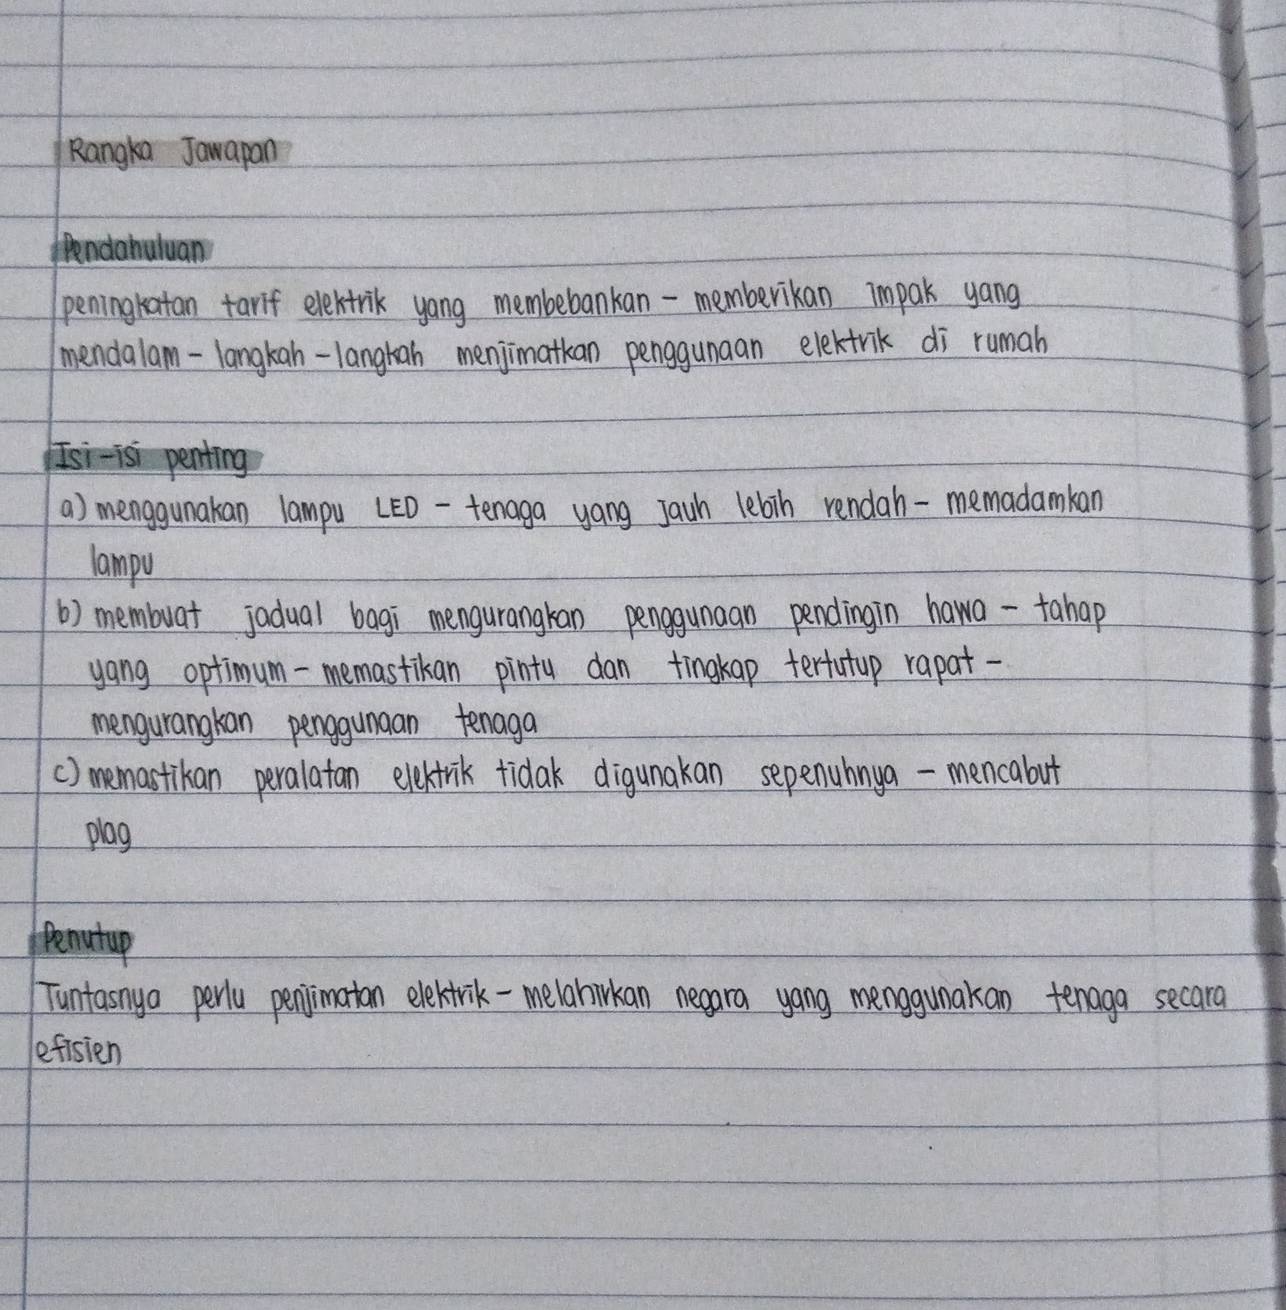 Rangka Jawapan
Pendahuluan
peningkatan tarif elektrik yang membebankan - memberikan impak yang
mendalam - langkah - langkah menjimatkan penggunaan elektrik di rumah
Isi-isi penting
a) menggunakan lampu LED - tenaga yang jauh lebih rendah - memadamkan
lampu
b) membuat jadual bagi mengurangkan penggunaan pendingin hawa - tahap
yang optimum - memastikan pintu dan tingkap tertutup rapat -
mengurangkan penggunaan tenaga
c) memastikan peralatan elektrik tidak digunakan sepenuhnya - mencabut
plag
Penutup
Tuntasnya perlu penjimatan elektrik - melahirkan negara yang menggunakan tenaga secara
efisien